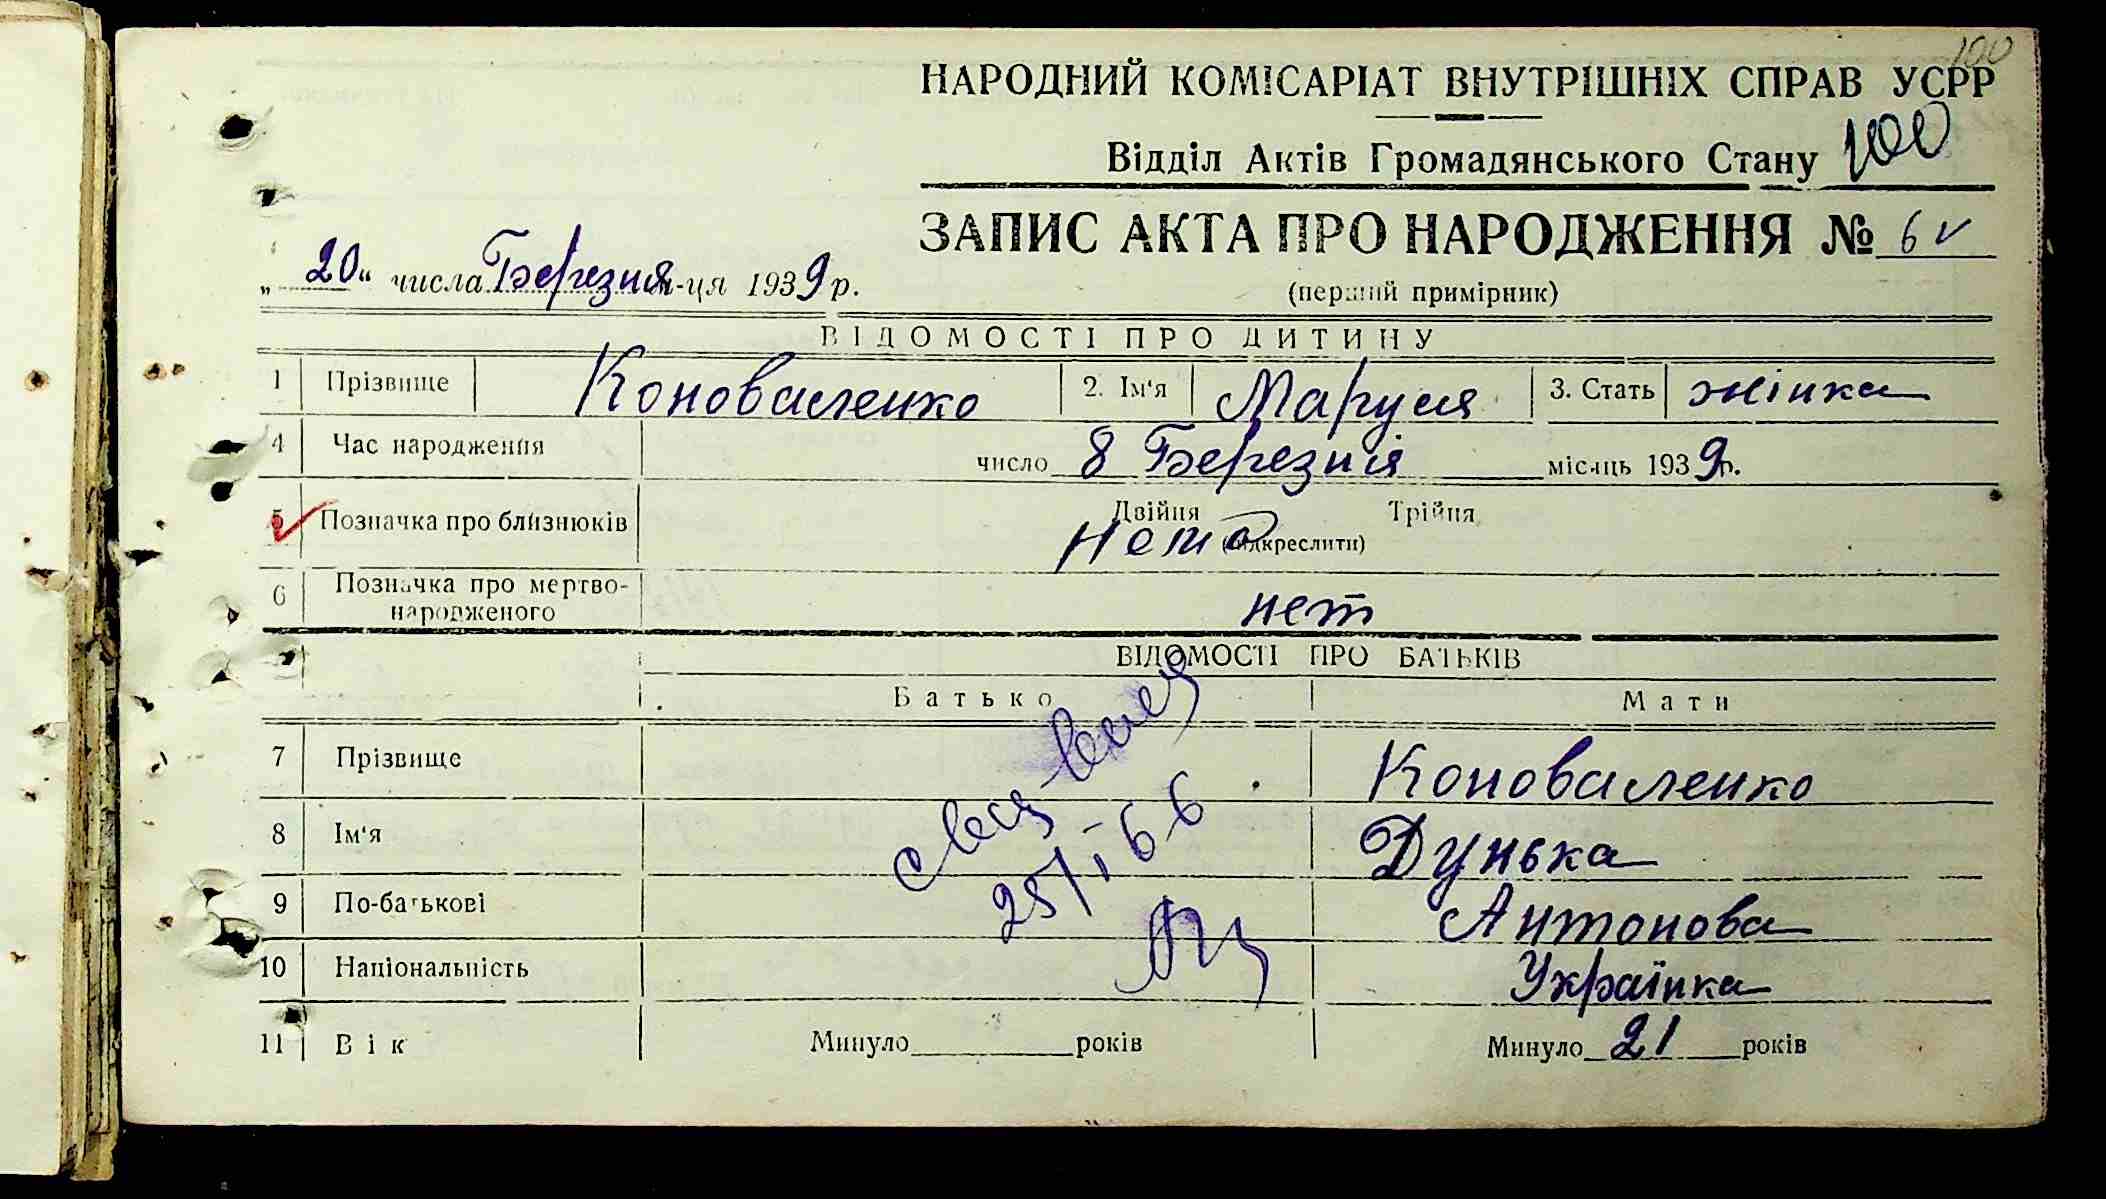 100
НАРОДНИЙ КОМІСАРІАТ ВНУТРІШНІХ СПРАВ УСРР
Відділ Актів Громадянського Стану 100
ЗАПИС АКТА ПРО НАРОДЖЕННЯ № 6
„20“ числа Березня м-ця 1939 р.
(перший примірник)
ВІДОМОСТІ ПРО ДИТИНУ
1 Прізвище Коноваленко 2. Ім'я Маруся 3. Стать жінка
4 Час народження число 8 Березня місяць 1939 р.
5 Позначка про близнюків Двійня Трійня
Нет (підкреслити)
6 Позначка про мертво-
народженого нет
ВІДОМОСТІ ПРО БАТЬКІВ
Батько Мати
7 Прізвище Коноваленко
8 Ім'я Дунька
9 По-батькові Антонова
10 Національність Українка
11 Вік Минуло років Минуло 21 років
25/I-66